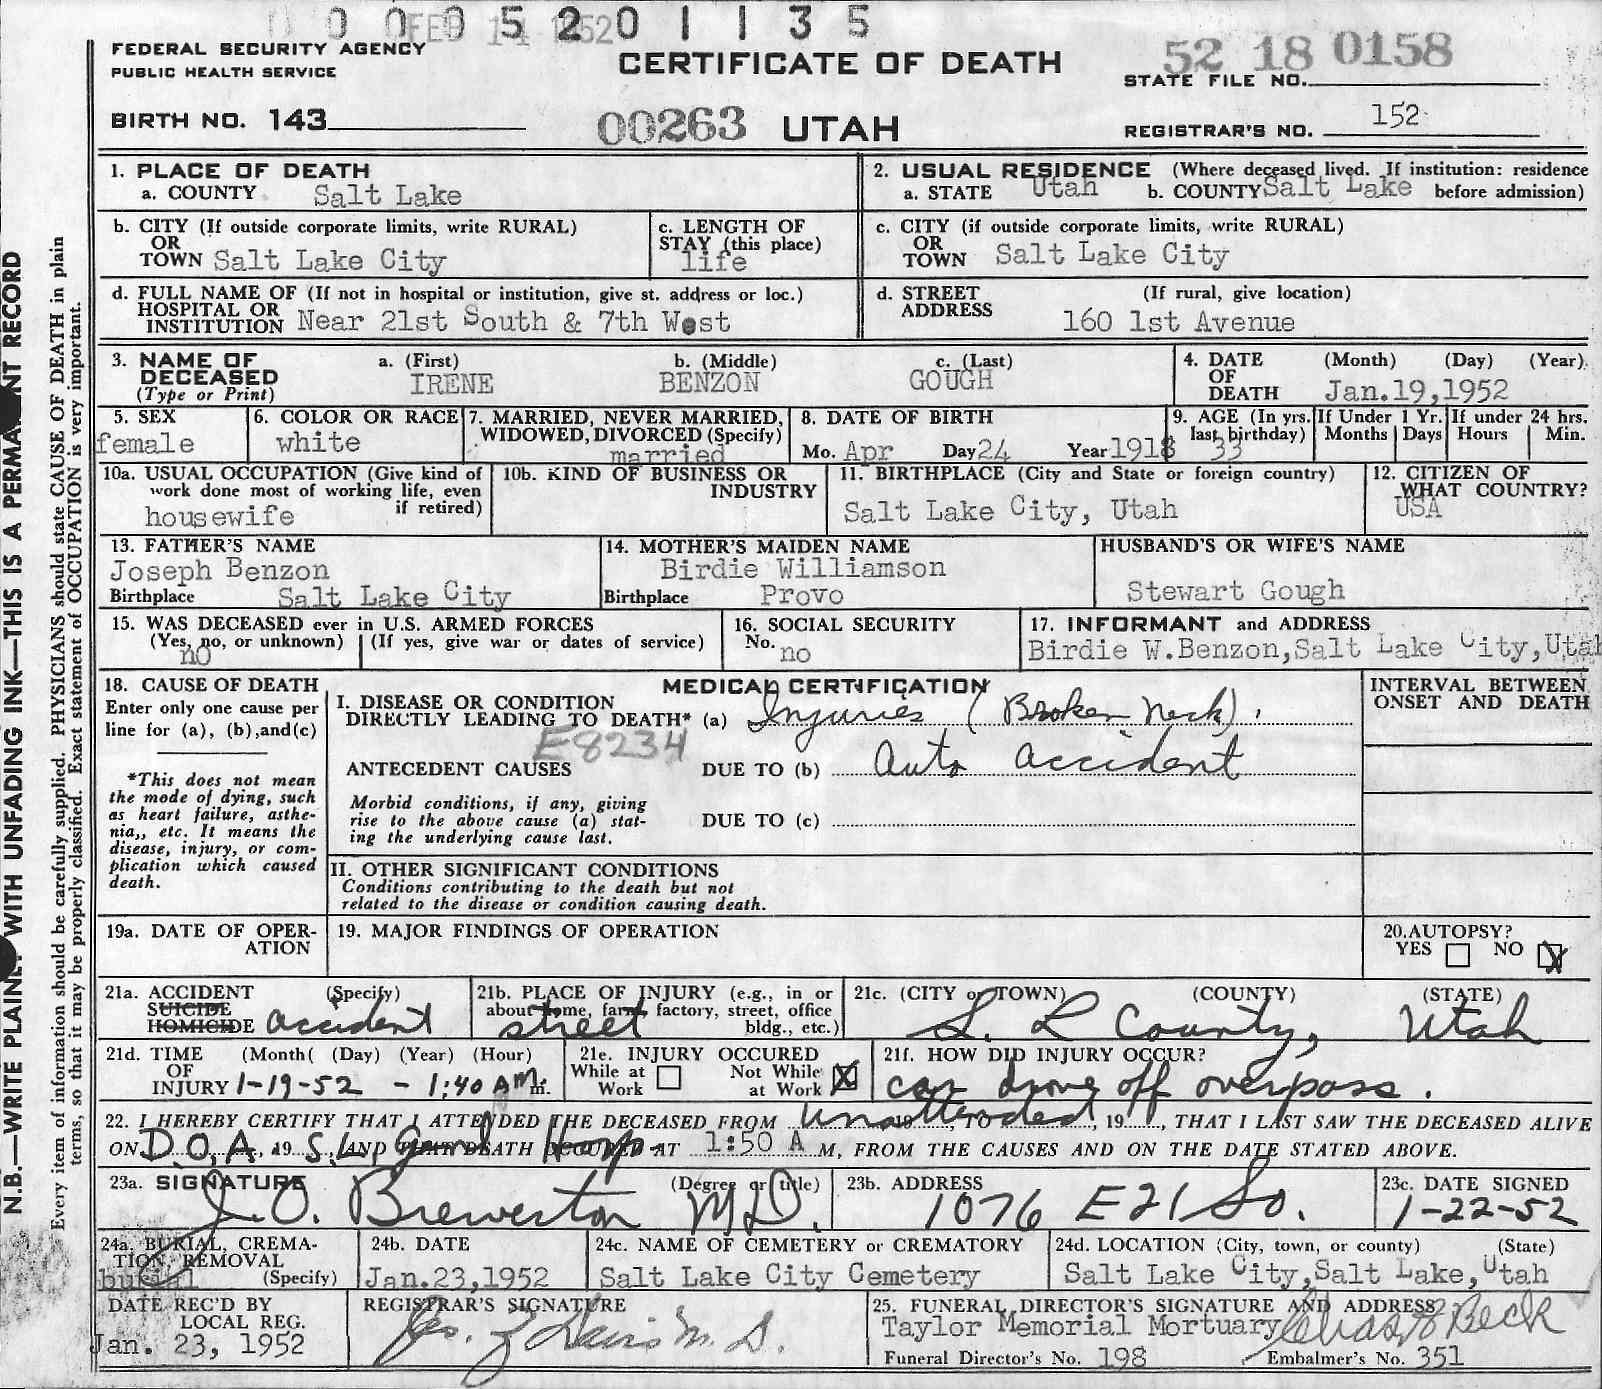 0 0 0 5 2 0 1 1 3 5
FEB 14 1952
FEDERAL SECURITY AGENCY
PUBLIC HEALTH SERVICE
CERTIFICATE OF DEATH
52 18 0158
STATE FILE NO.
BIRTH NO. 143
00263 UTAH
REGISTRAR'S NO. 152
1. PLACE OF DEATH
a. COUNTY Salt Lake
2. USUAL RESIDENCE (Where deceased lived. If institution: residence
a. STATE Utah b. COUNTY Salt Lake before admission)
b. CITY (If outside corporate limits, write RURAL)
OR
TOWN Salt Lake City
c. LENGTH OF
STAY (this place)
life
c. CITY (if outside corporate limits, write RURAL)
OR
TOWN Salt Lake City
d. FULL NAME OF (If not in hospital or institution, give st. address or loc.)
HOSPITAL OR
INSTITUTION Near 21st South & 7th West
d. STREET (If rural, give location)
ADDRESS
160 1st Avenue
3. NAME OF a. (First) b. (Middle) c. (Last)
DECEASED IRENE BENZON GOUGH
(Type or Print)
4. DATE (Month) (Day) (Year)
OF
DEATH Jan.19,1952
5. SEX
female
6. COLOR OR RACE
white
7. MARRIED, NEVER MARRIED,
WIDOWED, DIVORCED (Specify)
married
8. DATE OF BIRTH
Mo. Apr Day 24 Year 1918
9. AGE (In yrs. If Under 1 Yr. If under 24 hrs.
last birthday) Months Days Hours Min.
33
10a. USUAL OCCUPATION (Give kind of
work done most of working life, even
if retired)
housewife
10b. KIND OF BUSINESS OR
INDUSTRY
11. BIRTHPLACE (City and State or foreign country)
Salt Lake City, Utah
12. CITIZEN OF
WHAT COUNTRY?
USA
13. FATHER'S NAME
Joseph Benzon
Birthplace Salt Lake City
14. MOTHER'S MAIDEN NAME
Birdie Williamson
Birthplace Provo
HUSBAND'S OR WIFE'S NAME
Stewart Gough
15. WAS DECEASED ever in U.S. ARMED FORCES
(Yes, no, or unknown) (If yes, give war or dates of service)
no
16. SOCIAL SECURITY
No.
no
17. INFORMANT and ADDRESS
Birdie W.Benzon,Salt Lake City,Utah
18. CAUSE OF DEATH
Enter only one cause per
line for (a), (b),and(c)
*This does not mean
the mode of dying, such
as heart failure, asthe-
nia,, etc. It means the
disease, injury, or com-
plication which caused
death.
MEDICAL CERTIFICATION
I. DISEASE OR CONDITION
DIRECTLY LEADING TO DEATH* (a) Injuries (Broken Neck).
E8234
ANTECEDENT CAUSES DUE TO (b) auto accident
Morbid conditions, if any, giving
rise to the above cause (a) stat-
ing the underlying cause last.
DUE TO (c)
II. OTHER SIGNIFICANT CONDITIONS
Conditions contributing to the death but not
related to the disease or condition causing death.
INTERVAL BETWEEN
ONSET AND DEATH
19a. DATE OF OPER-
ATION
19. MAJOR FINDINGS OF OPERATION
20.AUTOPSY?
YES NO X
21a. ACCIDENT (Specify)
SUICIDE
HOMICIDE accident
21b. PLACE OF INJURY (e.g., in or
about home, farm, factory, street, office
bldg., etc.)
street
21c. (CITY or TOWN) (COUNTY) (STATE)
S. L County, Utah
21d. TIME (Month( (Day) (Year) (Hour)
OF
INJURY 1-19-52 - 1:40 AM. m.
21e. INJURY OCCURED
While at Not While
Work at Work X
21f. HOW DID INJURY OCCUR?
car drove off overpass.
22. I HEREBY CERTIFY THAT I ATTENDED THE DECEASED FROM unattended, 19, TO, 19, THAT I LAST SAW THE DECEASED ALIVE
ON D.O.A., 19 S.L. Genl Hosp. AND THAT DEATH OCCURED AT 1:50 A M, FROM THE CAUSES AND ON THE DATE STATED ABOVE.
23a. SIGNATURE (Degree or title)
J.O. Brewerton MD.
23b. ADDRESS
1076 E 21 So.
23c. DATE SIGNED
1-22-52
24a. BURIAL, CREMA-
TION, REMOVAL
burial (Specify)
24b. DATE
Jan.23,1952
24c. NAME OF CEMETERY or CREMATORY
Salt Lake City Cemetery
24d. LOCATION (City, town, or county) (State)
Salt Lake City,Salt Lake,Utah
DATE REC'D BY
LOCAL REG.
Jan. 23, 1952
REGISTRAR'S SIGNATURE
Davis M.D.
25. FUNERAL DIRECTOR'S SIGNATURE AND ADDRESS
Taylor Memorial Mortuary Chas B Beck
Funeral Director's No. 198 Embalmer's No. 351
N.B.—WRITE PLAINLY WITH UNFADING INK—THIS IS A PERMANENT RECORD
Every item of information should be carefully supplied. PHYSICIANS should state CAUSE OF DEATH in plain
terms, so that it may be properly classified. Exact statement of OCCUPATION is very important.